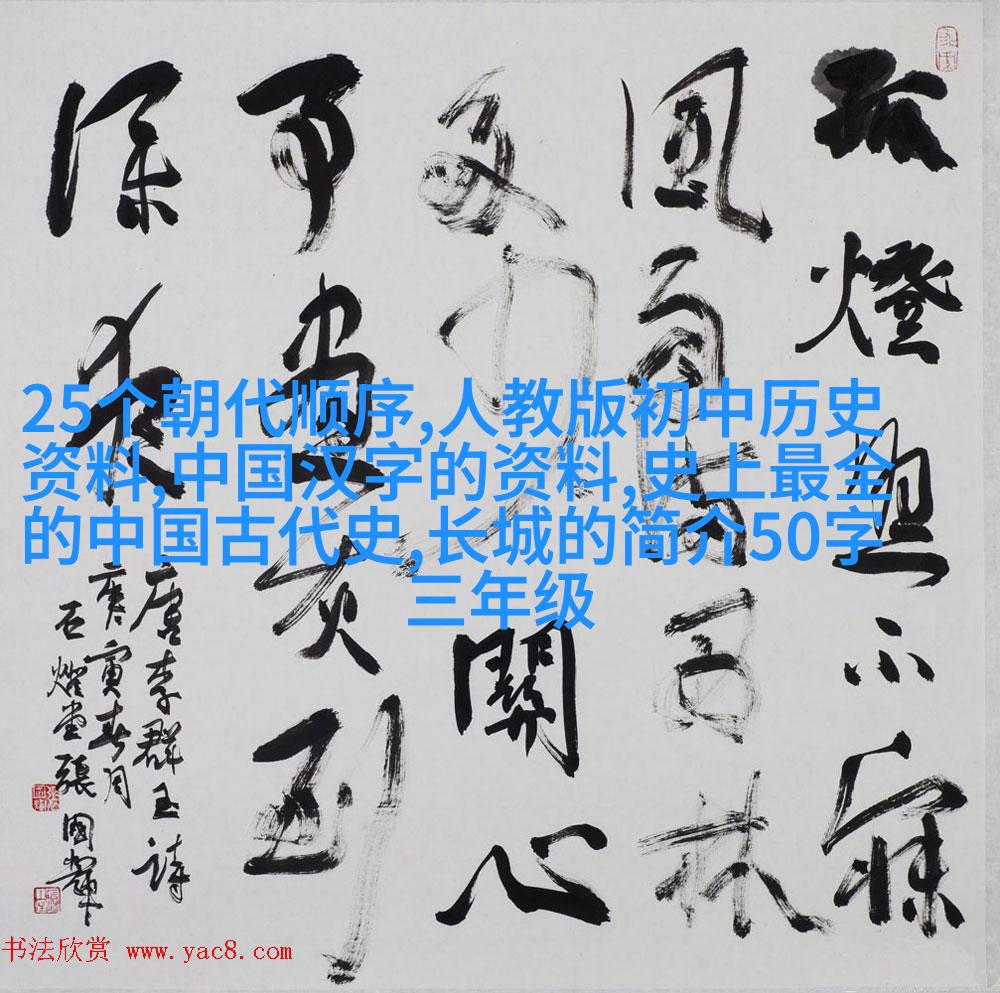 25个朝代顺序,人教版初中历史
资料,中国汉字的资料,史上最全
的中国古代史,长城的简介50字
三年级
孤燈照不寐
風雨滿西林
多少關心
事畫灰到
深夜
唐李群玉詩
庚寅春月
石 堂張國
书法欣赏 www.yac8.com